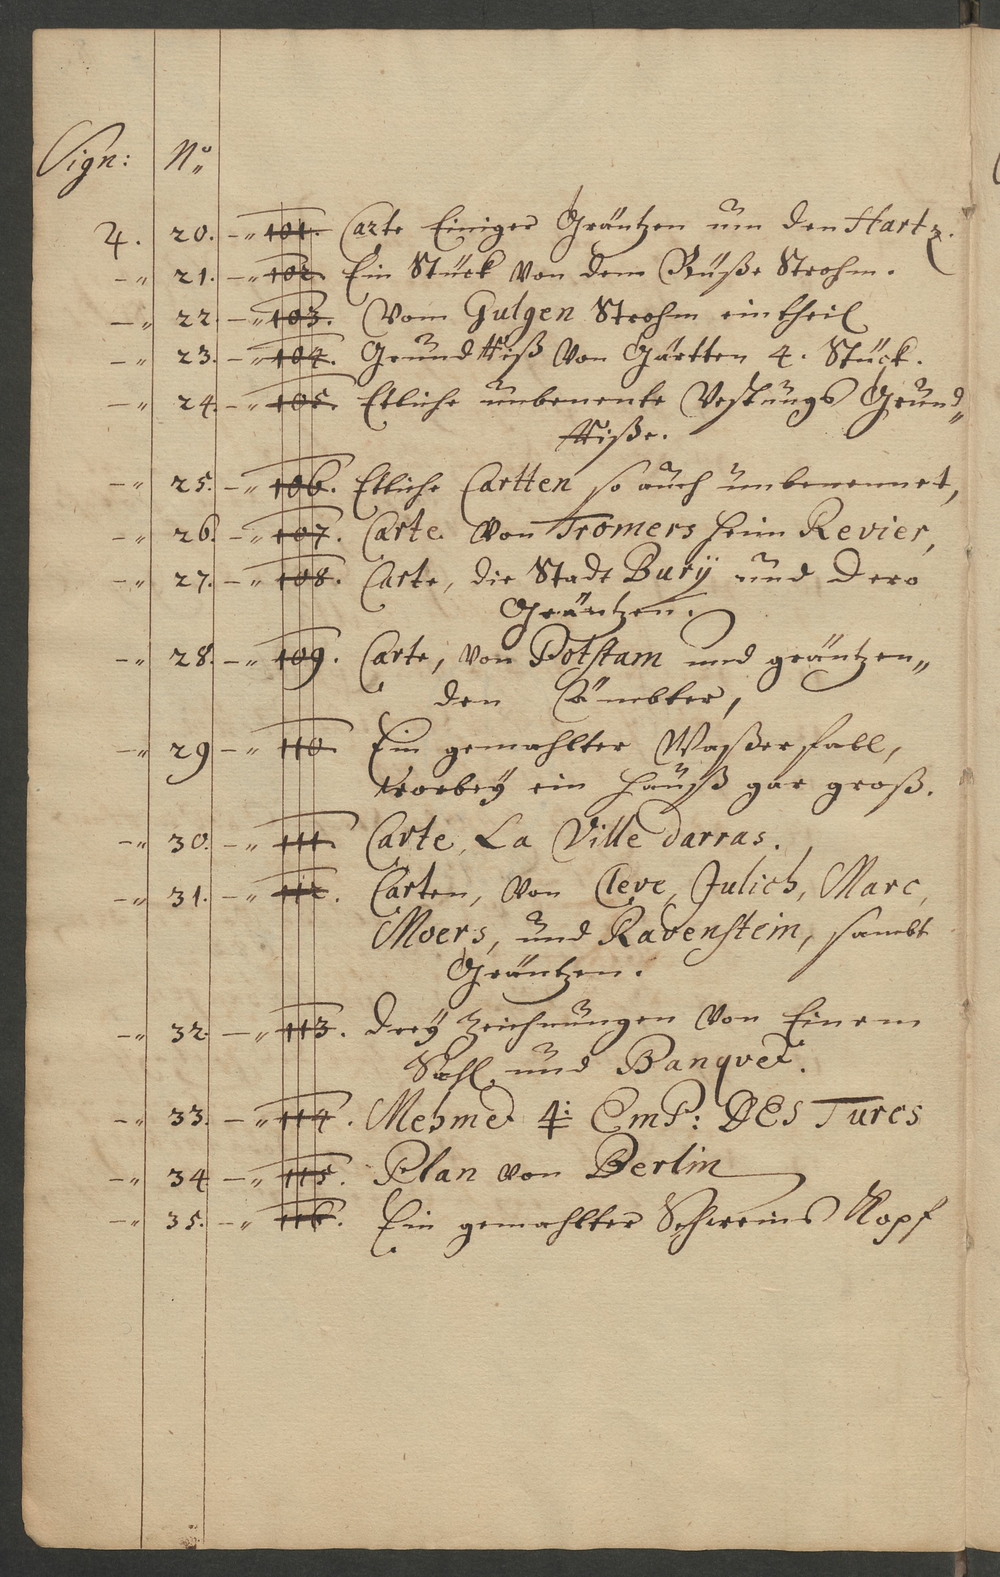 Sign: No
4. 20. -" 101. Carte Einiger Gräntzen um den Hartz.
-" 21. -" 102. Ein Stück von dem Strohm.
-" 22. -" 103. Vom Gulgen Strohm ein theil
-" 23. -" 104. Grundtriß von Gärtten 4. Stück.
-" 24. -" 105. Etliche unbenente Vestungs Grund"
triße.
-" 25. -" 106. Etliche Cartten so auch unbenennet,
-" 26. -" 107. Carte von Tromers heim Revier,
-" 27. -" 108. Carte, die Stadt Burÿ und dero
Gräntzen.
-" 28. -" 109. Carte, von Potstam und gräntzen"
den Ämbter,
-" 29 -" 110. Ein gemahlter Waßerfall,
worbeÿ ein Hauß gar groß.
-" 30. -" 111. Carte, La Ville darras.
-" 31. -" 112. Carten, von Cleve, Julich, Marc,
Moers, und Ravenstein, sambt
Gräntzen.
-" 32. -" 113. Dreÿ Zeichnungen von Einem
Sahl und Banquet.
-" 33. -" 114. Mehmet 4: Emp: DES Turcs
-" 34 -" 115. Plan von Berlin
-" 35. -" 116. Ein gemahlter Schweins Kopf